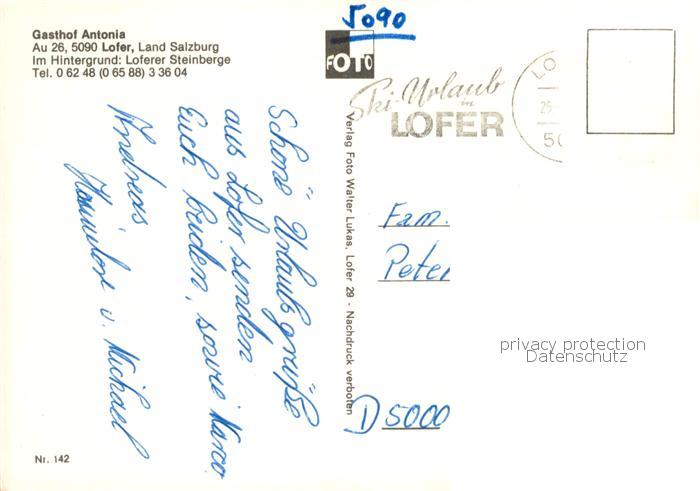 Gasthof Antonia
Au 26, 5090 Lofer, Land Salzburg
Im Hintergrund: Loferer Steinberge
Tel. 0 62 48 (0 65 88) 3 36 04
5090
FOTO
Ski-Urlaub
in
LOFER
LO
25.
50
Schöne Urlaubsgrüße
aus Lofer senden
Euch beiden, sowie Marco
Andreas
Hannelore u. Michael
Verlag Foto Walter Lukas, Lofer 29 - Nachdruck verboten
Fam.
Peter
privacy protection
Datenschutz
D 5000
Nr. 142